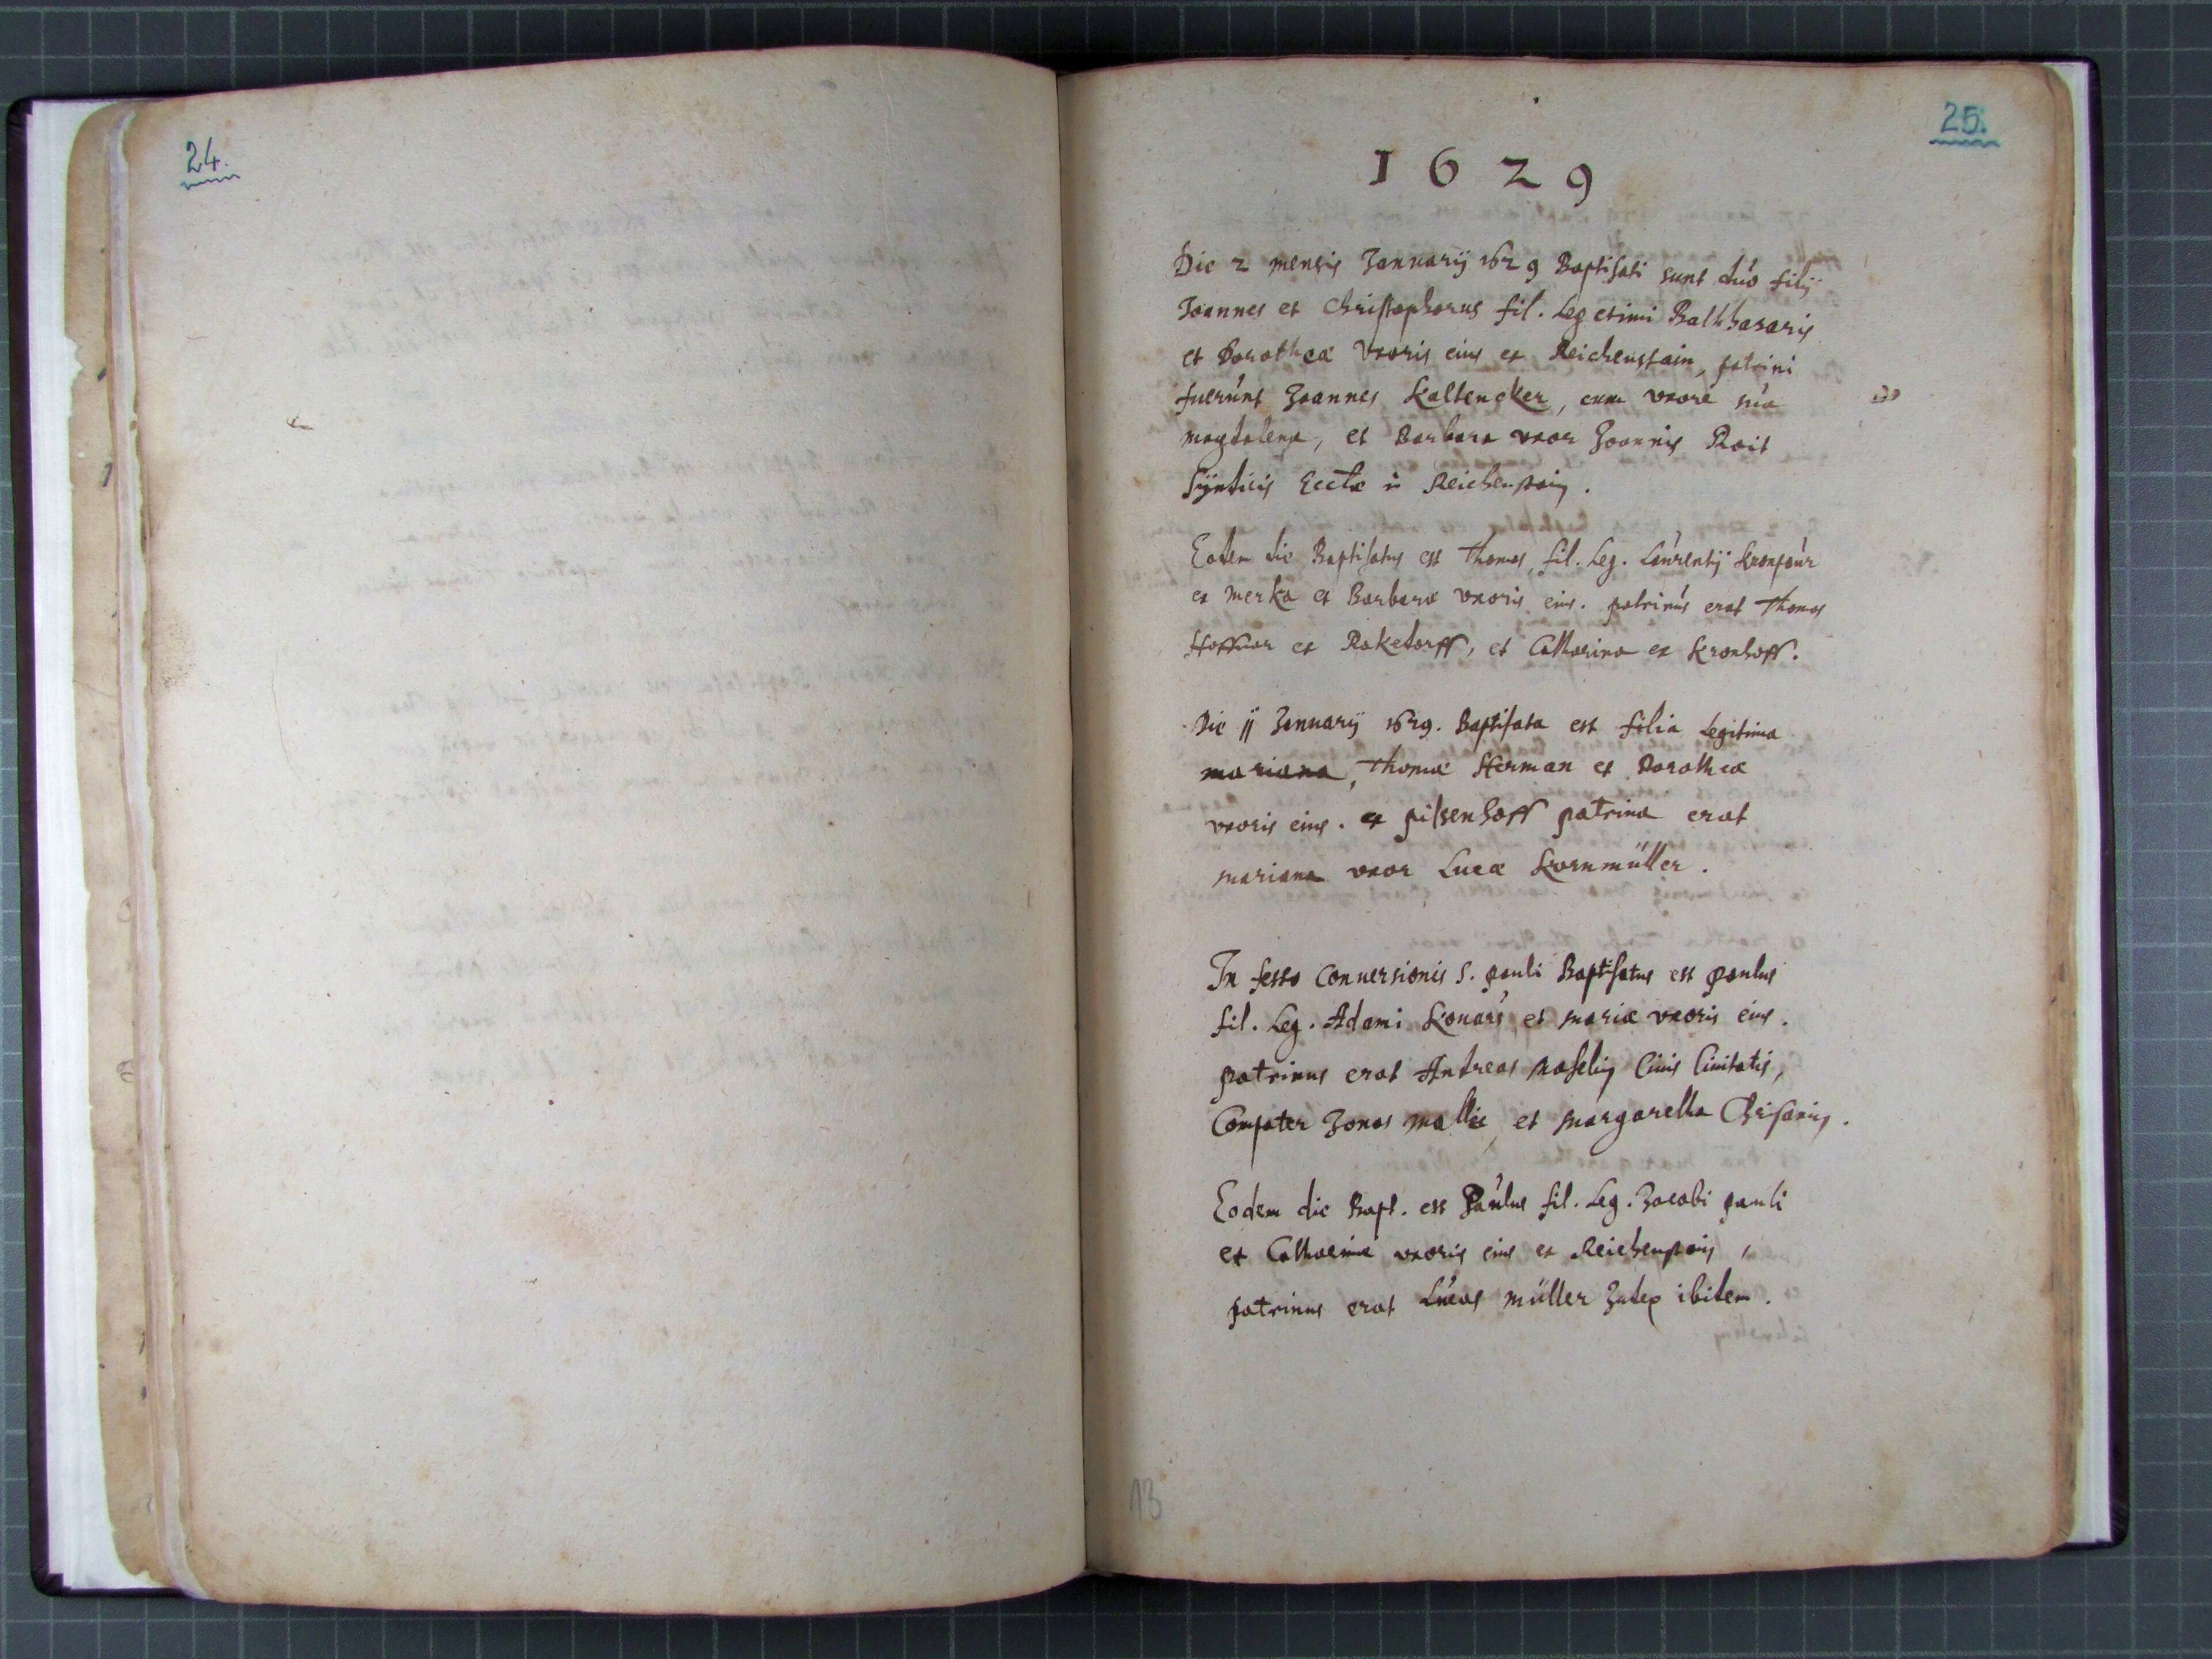 24.
25.
1629
Die 2 mensis Januarij 1629 Baptisati sunt duo filij
Joannes et Christophorus fil. Legetimi Balthasaris
et Dorotheæ Vxoris eius ex Reichenstain, patrini
fuerunt Joannes Kaltencker, cum vxore sua
magdalena, et Barbara vxor Joannis Rait
Syndicis Eccłæ in Reichenstain.
Eodem die Baptisatus est Thomas, fil. Leg. Laurentij
ex Merka et Barbaræ vxoris eius. patrinus erat Thomas
Hoffner ex Raketorff, et Catharina ex Kronhoff.
Die 11 Januarij 1629. Baptisata est filia Legitima
mariana, Thomæ Herman et Dorotheæ
vxoris eius. ex pilsenhoff patrina erat
mariana vxor Lucæ Kornmüller.
In festo Conuersionis S. pauli Baptisatus est paulus
fil. Leg. Adami et mariæ vxoris eius.
patrinus erat Andreas Ciuis Ciuitatis,
Compater Jonas et Margaretta
Eodem die Bapt. est Paulus fil. Leg. Jacobi pauli
et Catharinæ vxoris eius ex Reichenstain,
patrinus erat Lucas müller Judex ibidem.
13